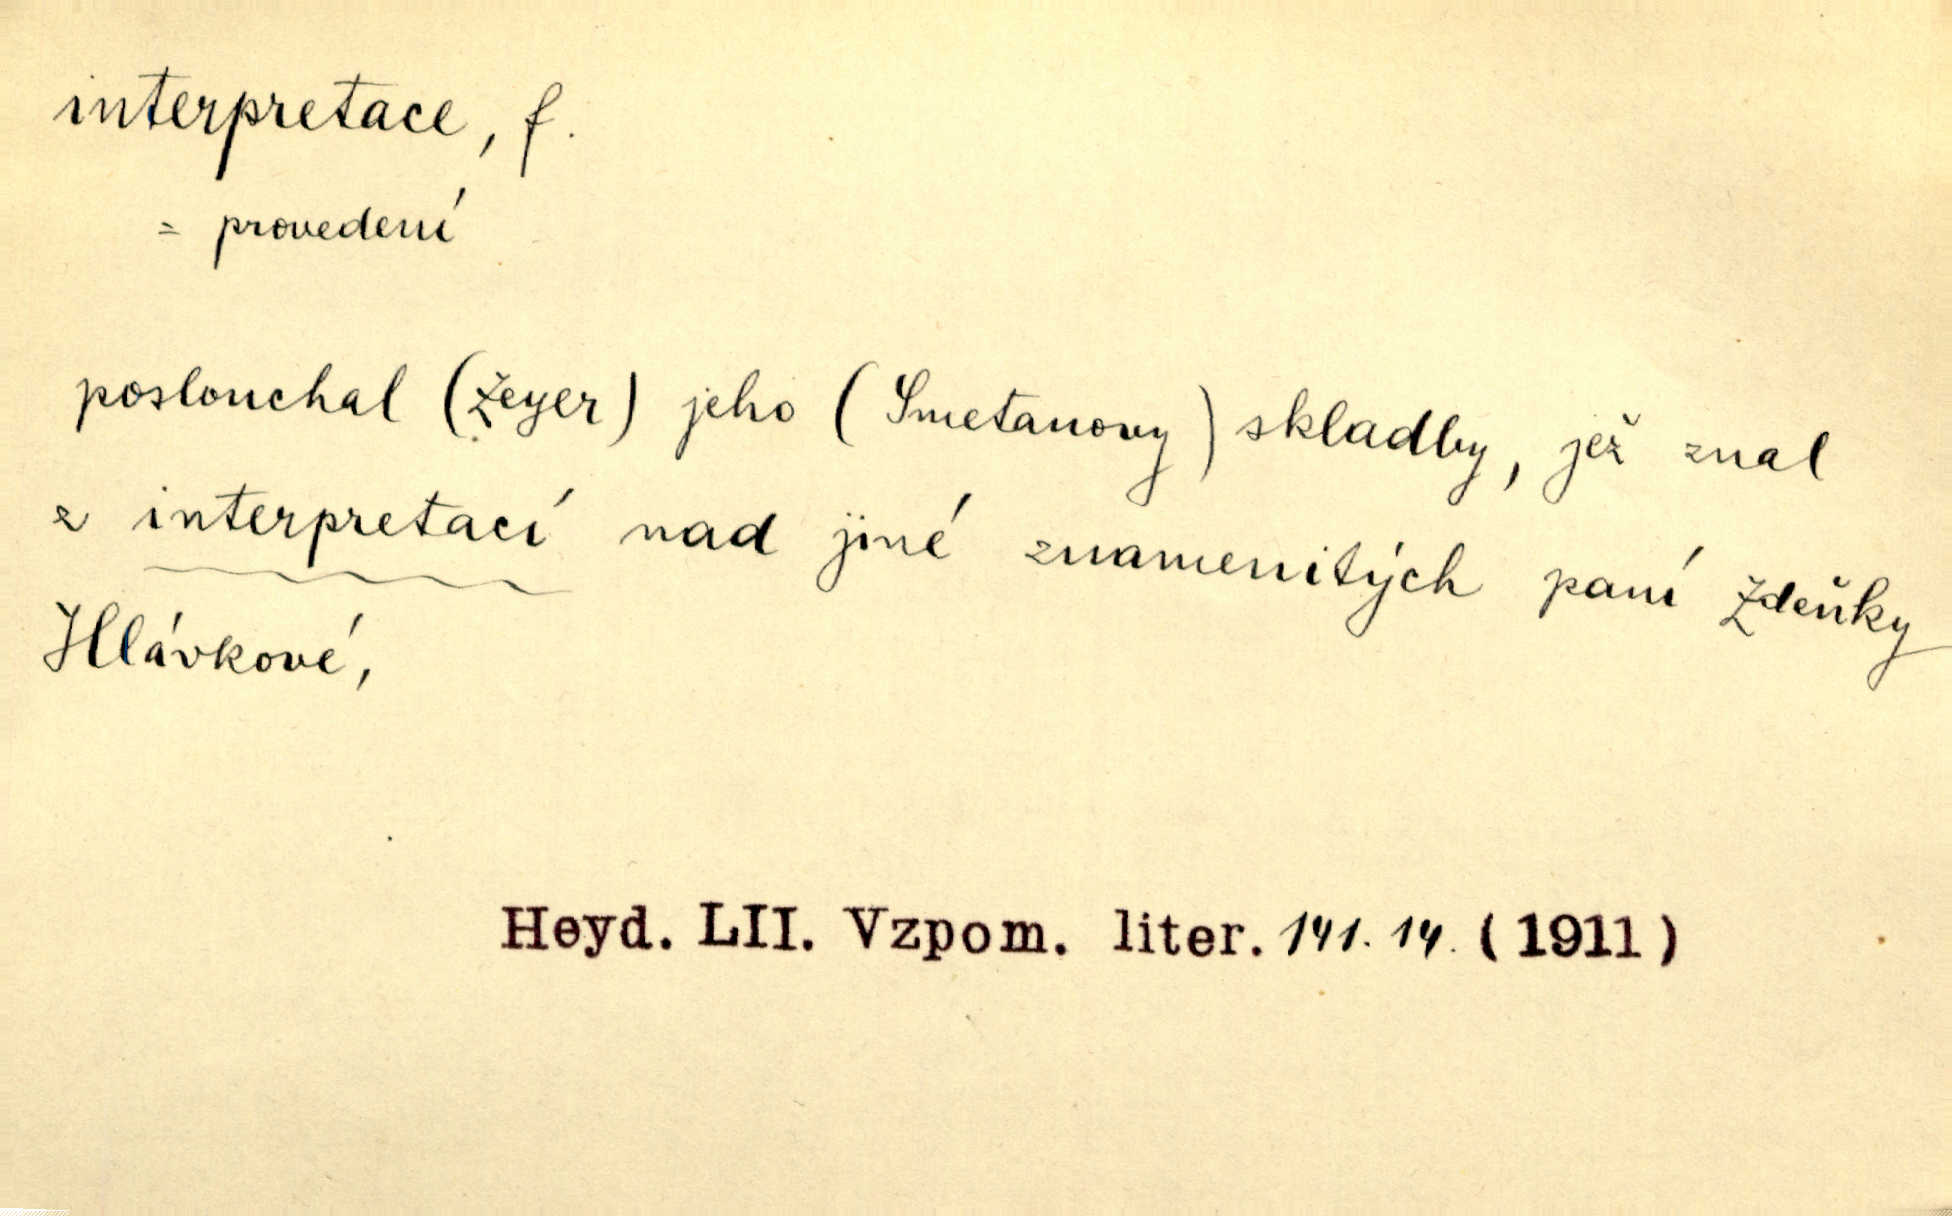 interpretace, f.
= provedení
poslouchal (Zeyer) jeho (Smetanovy) skladby, jež znal
z interpretací nad jiné znamenitých paní Zdeňky
Hlávkové,
Heyd. LII. Vzpom. liter. 141. 14. (1911)